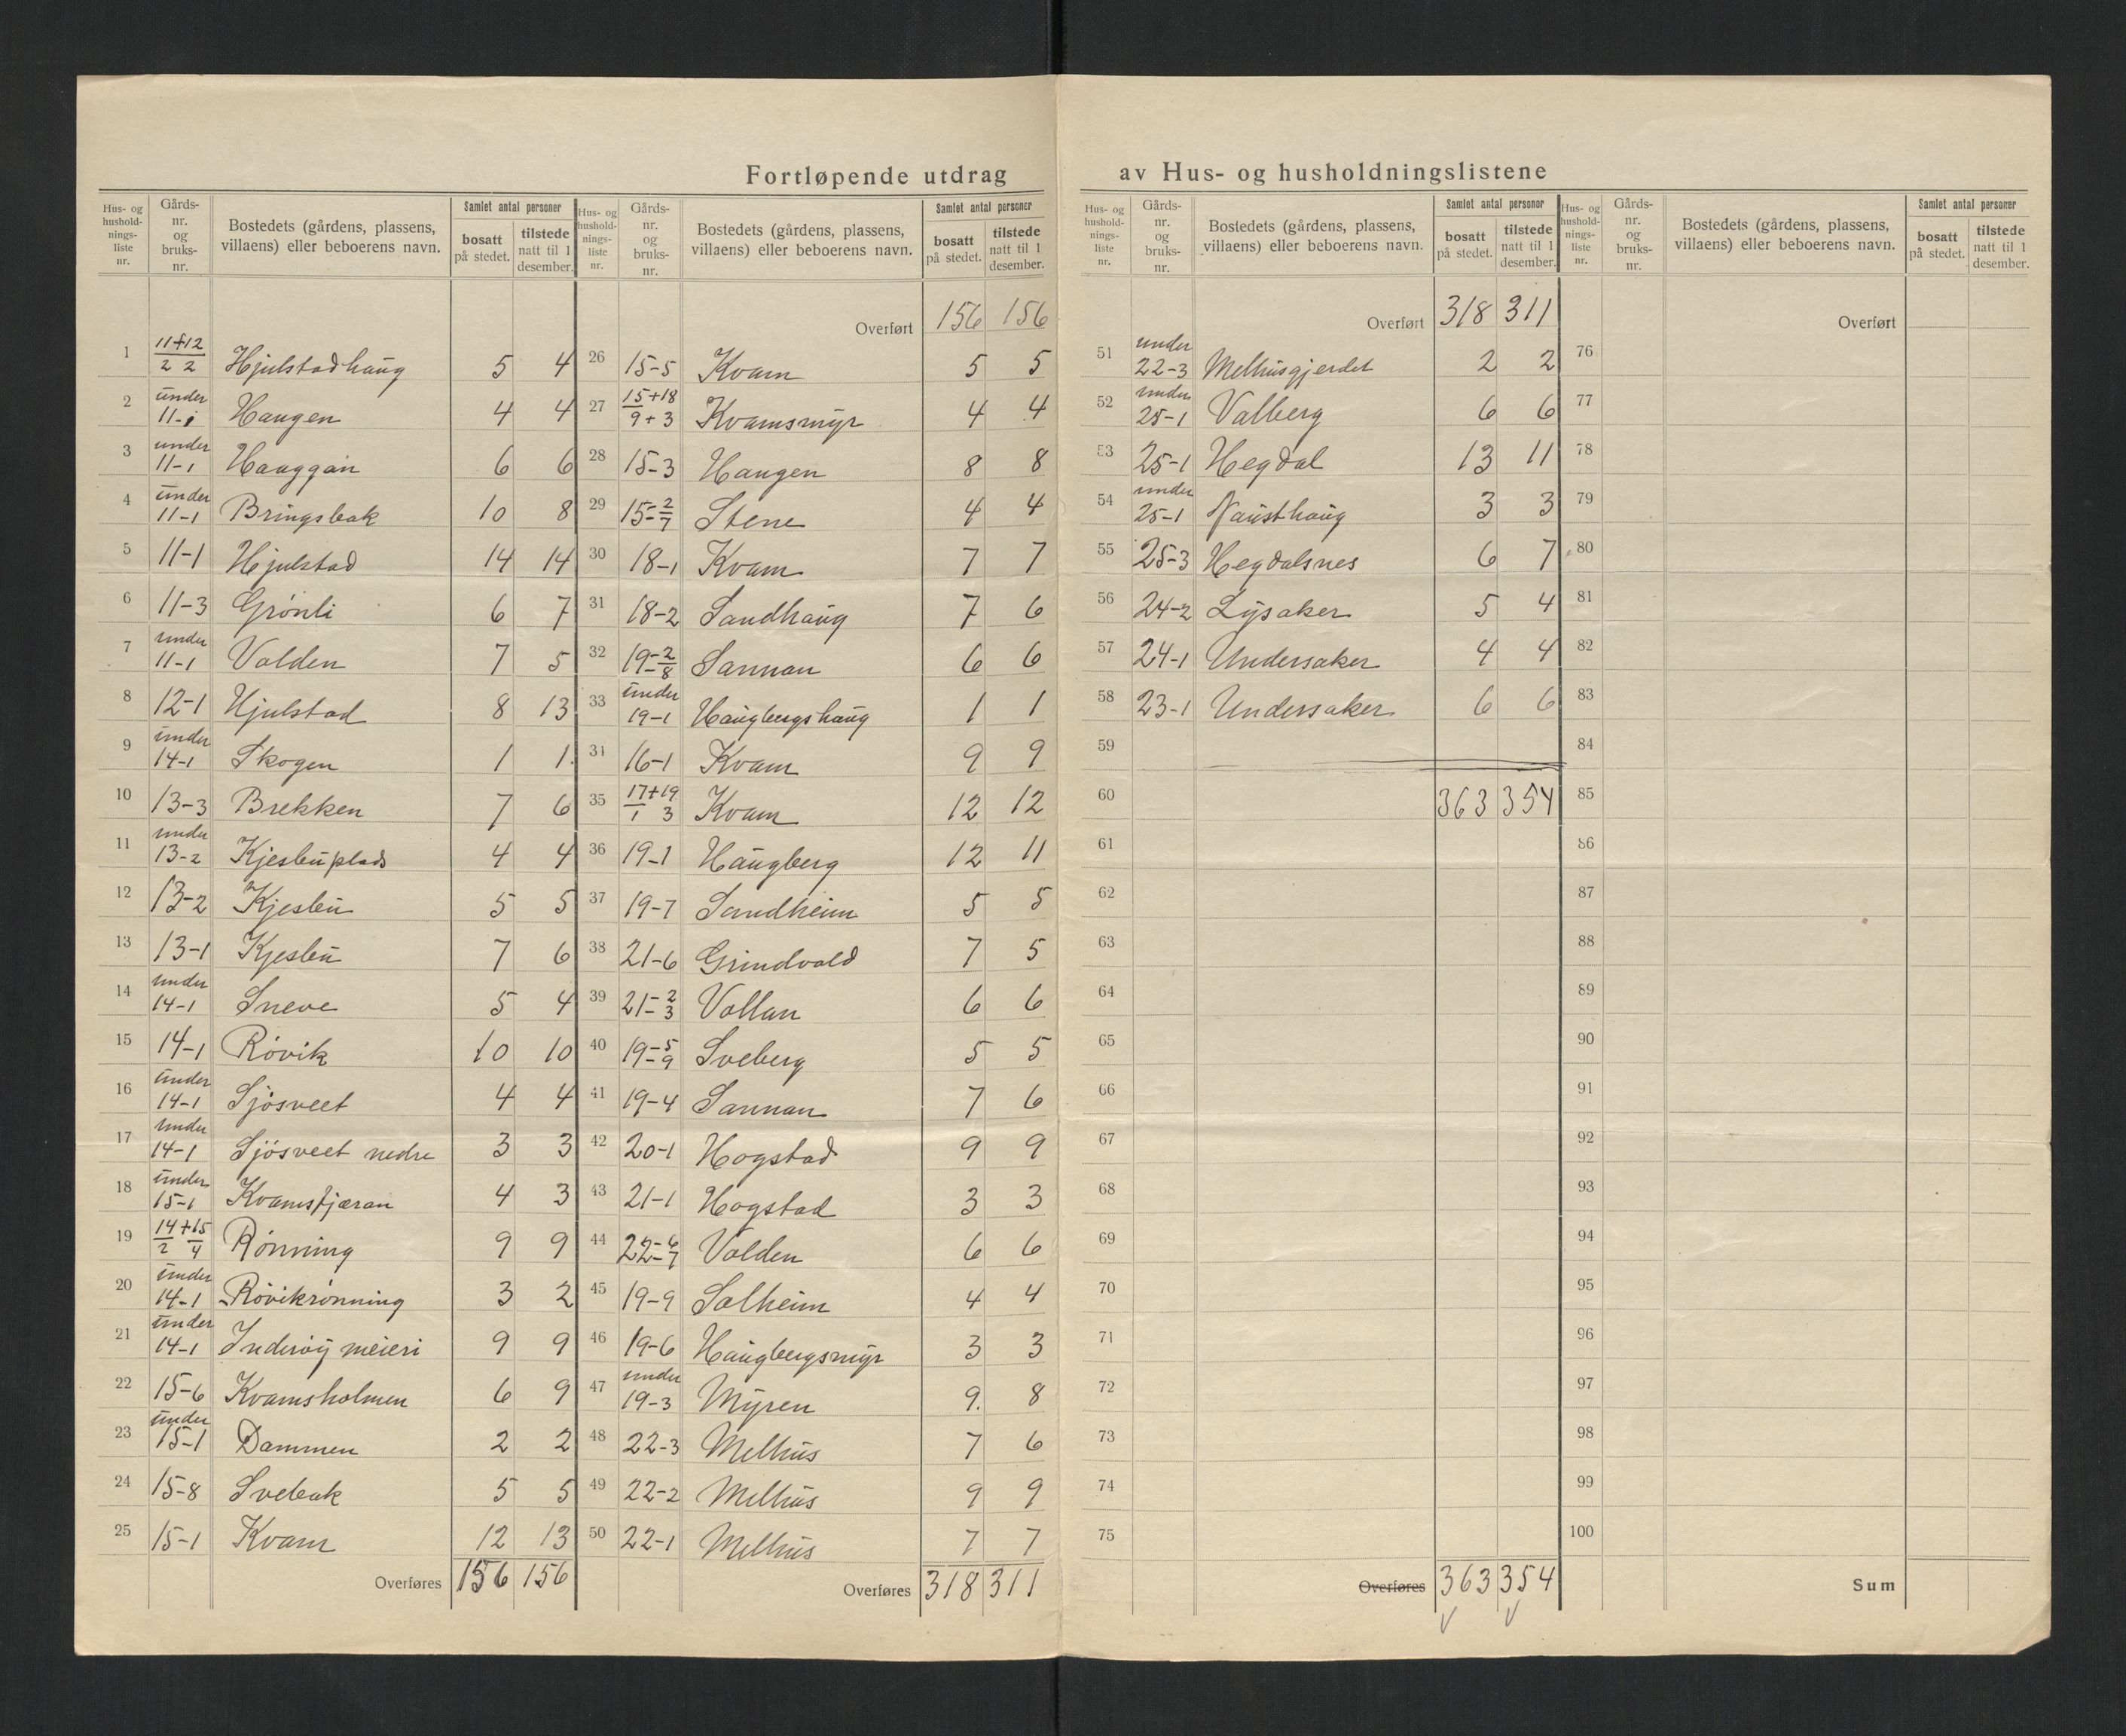 Fortløpende utdrag av Hus- og husholdningslistene
Hus- og hushold-nings-liste nr. | Gårds-nr. og bruks-nr. | Bostedets (gårdens, plassens, villaens) eller beboerens navn. | Samlet antal personer | bosatt på stedet. | tilstede natt til 1 desember.
1 11+12/2 2 Hjulstadhaug 5 4
2 under 11-1 Haugen 4 4
3 under 11-1 Hauggan 6 6
4 under 11-1 Bringsbak 10 8
5 11-1 Hjulstad 14 14
6 11-3 Grönli 6 7
7 under 11-1 Valden 7 5
8 12-1 Hjulstad 8 13
9 under 14-1 Skogen 1 1
10 13-3 Brekken 7 6
11 under 13-2 Kjesbuplads 4 4
12 13-2 Kjesbu 5 5
13 13-1 Kjesbu 7 6
14 under 14-1 Sneve 5 4
15 14-1 Rövik 10 10
16 under 14-1 Sjösveet 4 4
17 under 14-1 Sjösveet nedre 3 3
18 under 15-1 Kvamsfjæran 4 3
19 14+15/2 4 Rönning 9 9
20 under 14-1 Rövikrönning 3 2
21 under 14-1 Inderöy meieri 9 9
22 15-6 Kvamsholmen 6 9
23 under 15-1 Dammen 2 2
24 15-8 Svebak 5 5
25 15-1 Kvam 12 13
Overføres 156 156
Hus- og hushold-nings-liste nr. | Gårds-nr. og bruks-nr. | Bostedets (gårdens, plassens, villaens) eller beboerens navn. | Samlet antal personer | bosatt på stedet. | tilstede natt til 1 desember.
Overført 156 156
26 15-5 Kvam 5 5
27 15+18/9+3 Kvamsmyr 4 4
28 15-3 Haugen 8 8
29 15-2/7 Stene 4 4
30 18-1 Kvam 7 7
31 18-2 Sandhaug 7 6
32 19-2/8 Sannan 6 6
33 under 19-1 Haugbergshaug 1 1
34 16-1 Kvam 9 9
35 17+19/1 3 Kvam 12 12
36 19-1 Haugberg 12 11
37 19-7 Sandheim 5 5
38 21-6 Grindvold 7 5
39 21-2/3 Vollan 6 6
40 19-5/9 Sveberg 5 5
41 19-4 Sannan 7 6
42 20-1 Hogstad 9 9
43 21-1 Hogstad 3 3
44 22-6/7 Volden 6 6
45 19-9 Solheim 4 4
46 19-6 Haugbergsmyr 3 3
47 under 19-3 Myren 9 8
48 22-3 Melhus 7 6
49 22-2 Melhus 9 9
50 22-1 Melhus 7 7
Overføres 318 311
Hus- og hushold-nings-liste nr. | Gårds-nr. og bruks-nr. | Bostedets (gårdens, plassens, villaens) eller beboerens navn. | Samlet antal personer | bosatt på stedet. | tilstede natt til 1 desember.
Overført 318 311
51 under 22-3 Melhusgjerdet 2 2
52 under 25-1 Valberg 6 6
53 25-1 Hegdal 13 11
54 under 25-1 Nausthaug 3 3
55 25-3 Hegdalsnes 6 7
56 24-2 Lysaker 5 4
57 24-1 Undersaker 4 4
58 23-1 Undersaker 6 6
59
60 363 354
61
62
63
64
65
66
67
68
69
70
71
72
73
74
75
Overføres 363 354
Hus- og hushold-nings-liste nr. | Gårds-nr. og bruks-nr. | Bostedets (gårdens, plassens, villaens) eller beboerens navn. | Samlet antal personer | bosatt på stedet. | tilstede natt til 1 desember.
Overført
76
77
78
79
80
81
82
83
84
85
86
87
88
89
90
91
92
93
94
95
96
97
98
99
100
Sum